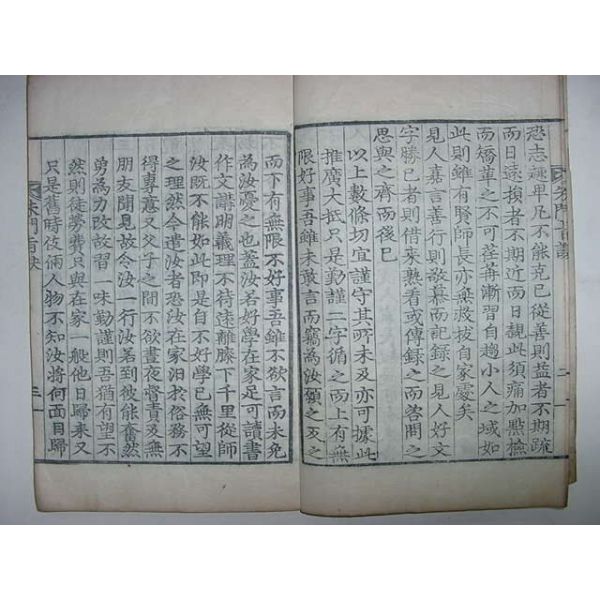 朱門旨訣 二
恐志趣卑凡不能克己從善則益者不期疏
而日遠損者不期近而日親此須痛加點檢
而矯革之不可荏苒漸習自趨小人之域如
此則雖有賢師長亦無救拔自家處矣
見人嘉言善行則敬慕而記錄之見人好文
字勝己者則借來熟看或傳錄之而咨問之
思與之齊而後已
以上數條切宜謹守其所未及亦可據此
推廣大抵只是勤謹二字循之而上有無
限好事吾雖未敢言而竊為汝願之反之
而下有無限不好事吾雖不欲言而未免
為汝憂之也蓋汝若好學在家足可讀書
作文講明義理不待遠離膝下千里從師
汝既不能如此即是自不好學已無可望
之理然今遣汝者恐汝在家汨於俗務不
得專意又父子之間不欲晝夜督責及無
朋友聞見故令汝一行汝若到彼能奮然
勇為力改故習一味勤謹則吾猶有望不
然則徒勞費只與在家一般他日歸來又
只是舊時伎倆人物不知汝將何面目歸
朱門旨訣 三